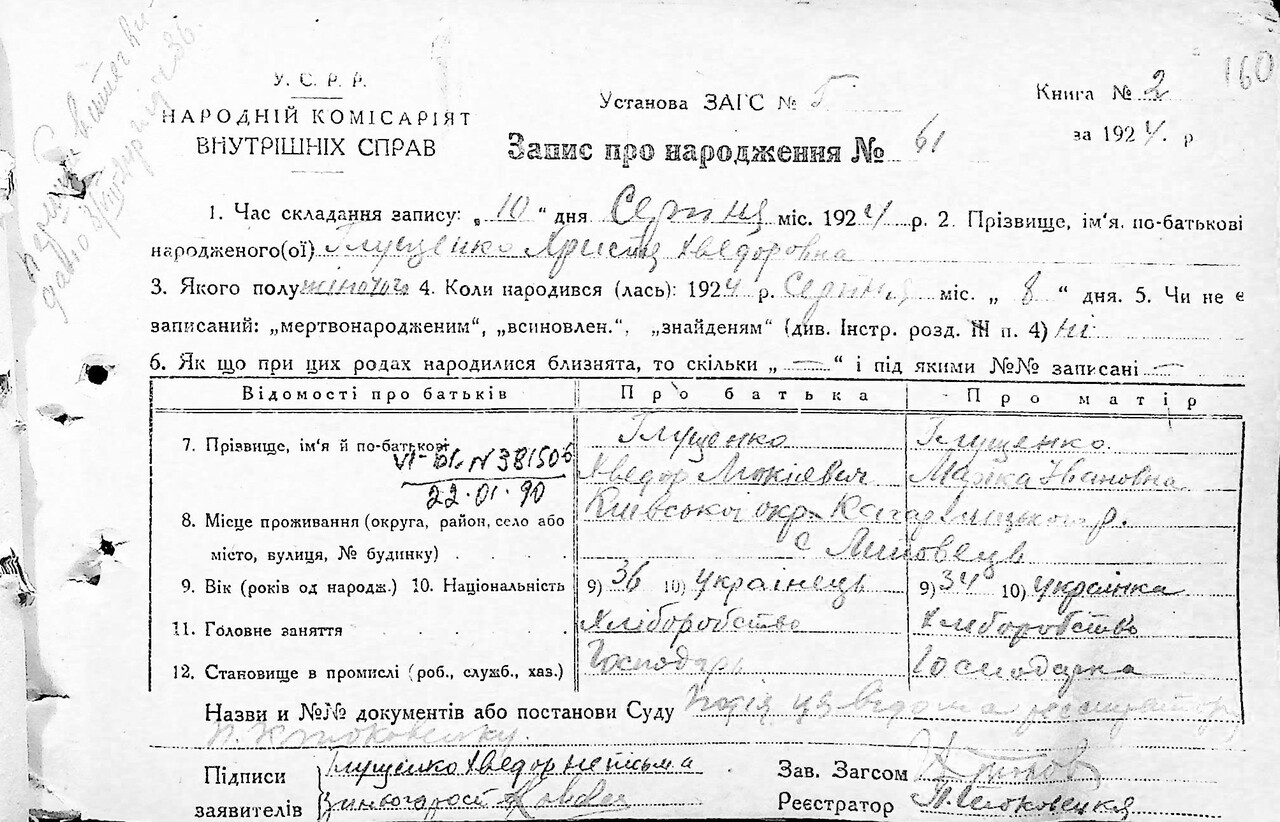 160
У. С. Р. Р.
НАРОДНІЙ КОМІСАРІЯТ
ВНУТРІШНІХ СПРАВ
Установа ЗАГС №
Книга № 2
за 1924. р
Запис про народження № 61
1. Час складання запису: „ 10 “ дня Серпня міс. 1924 р. 2. Прізвище, ім‘я, по-батькові
народженого(ої) Глущенко Христя Хведоровна
3. Якого полу жіночого 4. Коли народився (лась): 1924 р. Серпня міс. „ 8 “ дня. 5. Чи не є
записаний: „мертвонародженим“, „всиновлен.“, „знайденям“ (див. Інстр. розд. III п. 4) ні
6. Як що при цих родах народилися близнята, то скільки „ — “ і під якими №№ записані —
Відомості про батьків Про батька Про матір
7. Прізвище, ім‘я й по-батькові Глущенко Глущенко
VI-БК N 381506
Хведор Мокієвич Марїка Ивановна
22.01.90
8. Місце проживання (округа, район, село або Київської окр. Кагарлицького р.
місто, вулиця, № будинку) с Липовець
9. Вік (років од народж.) 10. Національність 9) 36 10) українець 9) 34 10) українка
11. Головне заняття Хліборобство Хліборобство
12. Становище в промислі (роб., служб., хаз.) Господарь Господарка
Назви и №№ документів або постанови Суду
Підписи Глущенко Хведор неписьма
заявителів
Зав. Загсом
Реєстратор